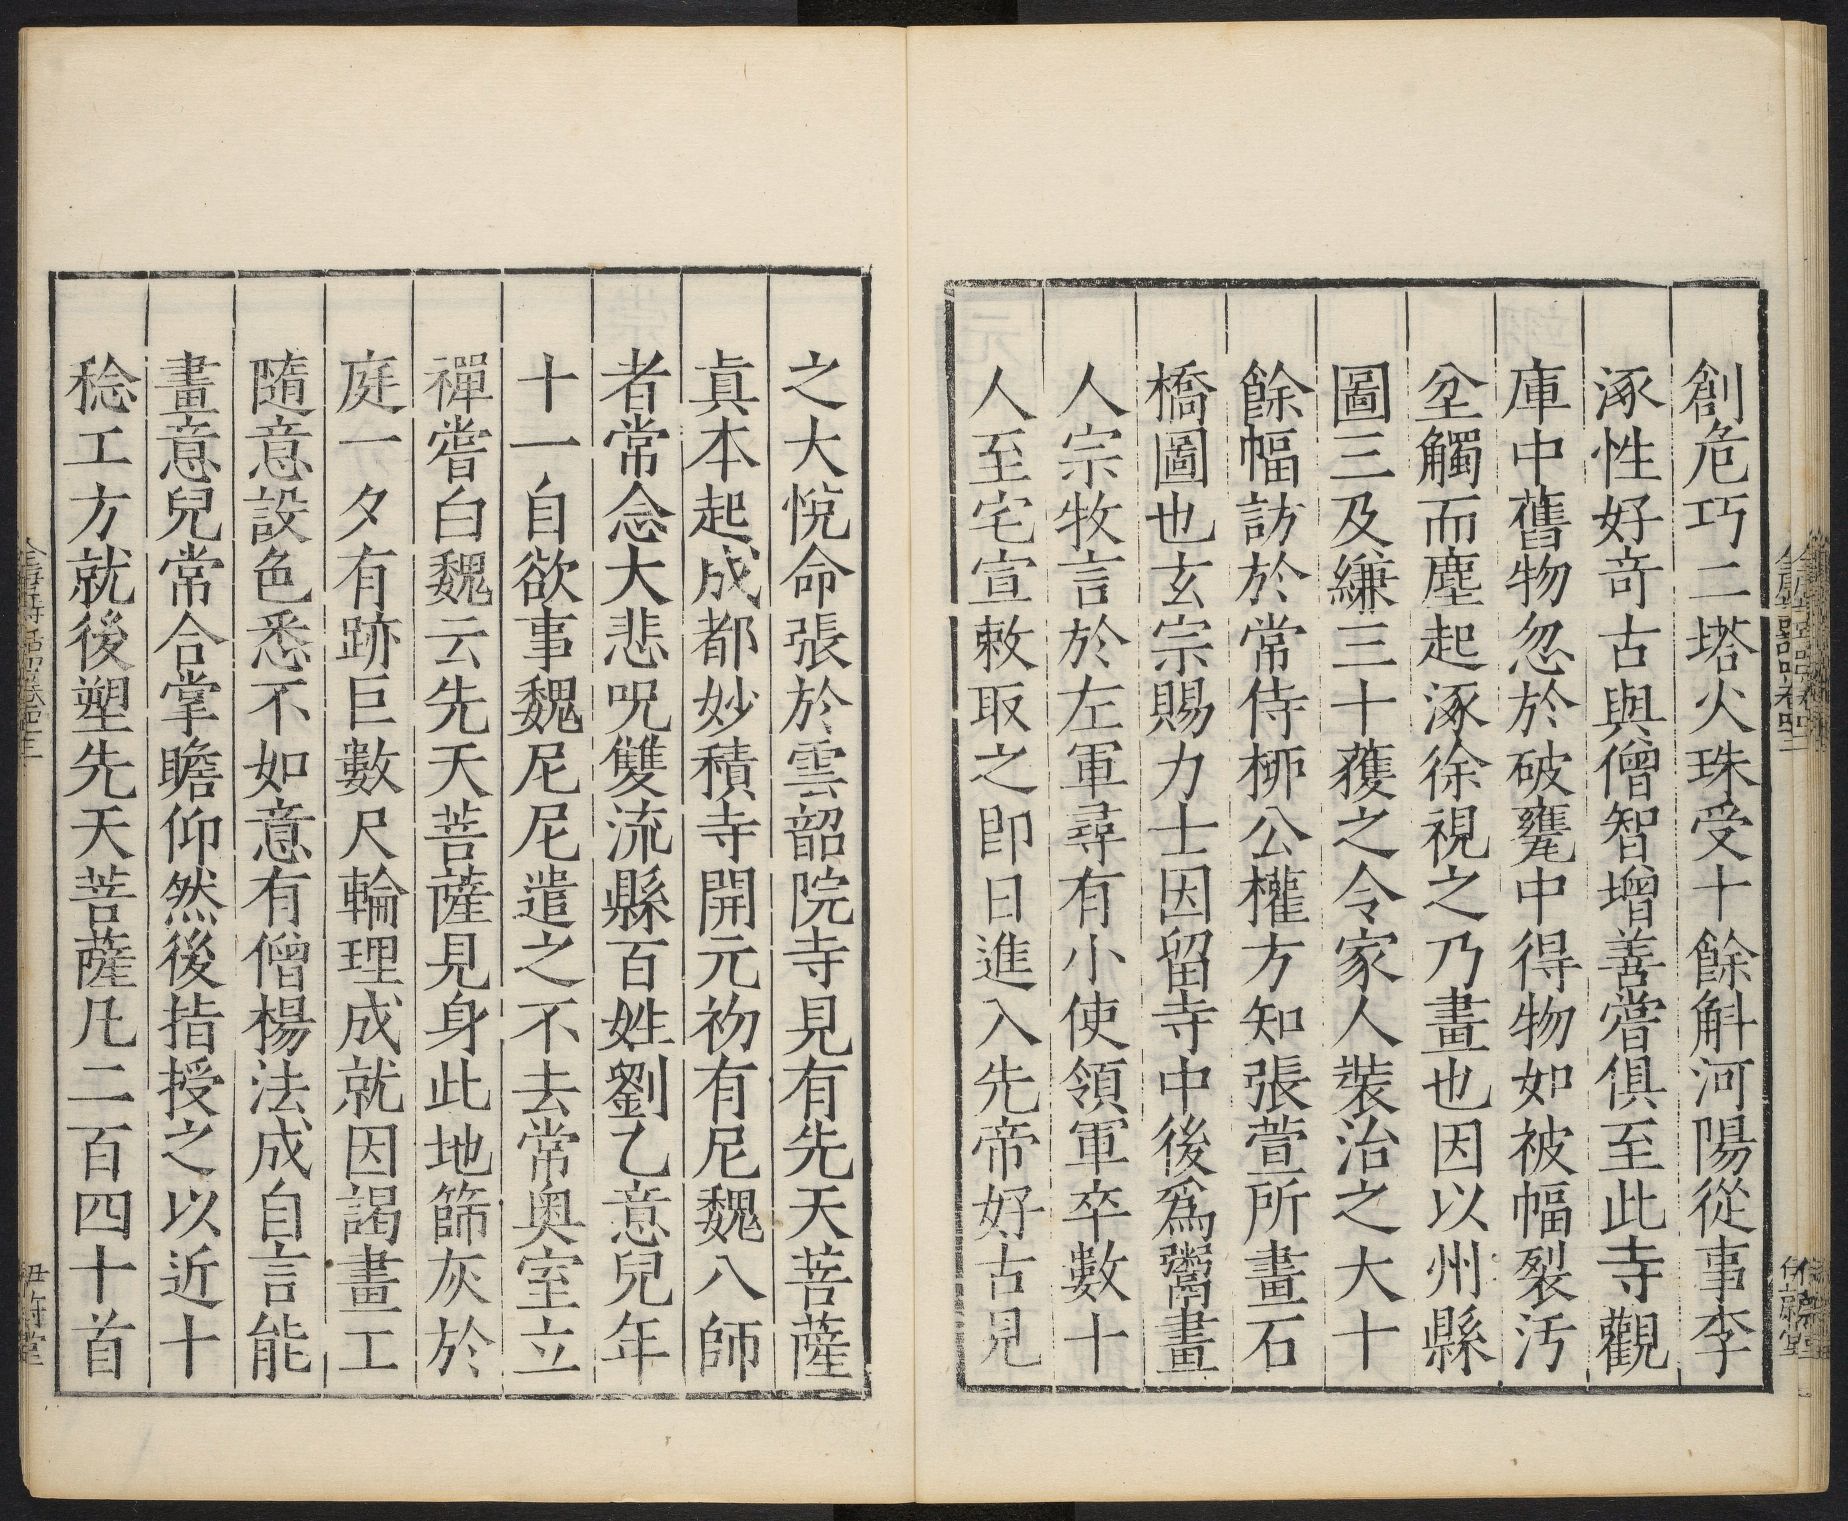 創危巧二塔火珠受十餘斛河陽從事李
涿性好奇古與僧智增善嘗俱至此寺觀
庫中舊物忽於破甕中得物如被幅裂汚
坌觸而塵起涿徐視之乃畫也因以州縣
圖三及縑三十獲之令家人裝治之大十
餘幅訪於常侍桺公權方知張萱所畫石
橋圖也玄宗賜力士因留寺中後爲鬻畫
人宗牧言於左軍尋有小使領軍卒數十
人至宅宣敕取之卽日進入先帝好古見
之大悅命張於雲韶院寺見有先天菩薩
眞本起成都妙積寺開元初有尼魏八師
者常念大悲呪雙流縣百姓劉乙意兒年
十一自欲事魏尼尼遣之不去常奥室立
禪嘗白魏云先天菩薩見身此地篩灰於
庭一夕有跡巨數尺輪理成就因謁畫工
隨意設色悉不如意有僧楊法成自言能
畫意兒常合掌瞻仰然後指授之以近十
稔工方就後塑先天菩薩凡二百四十首